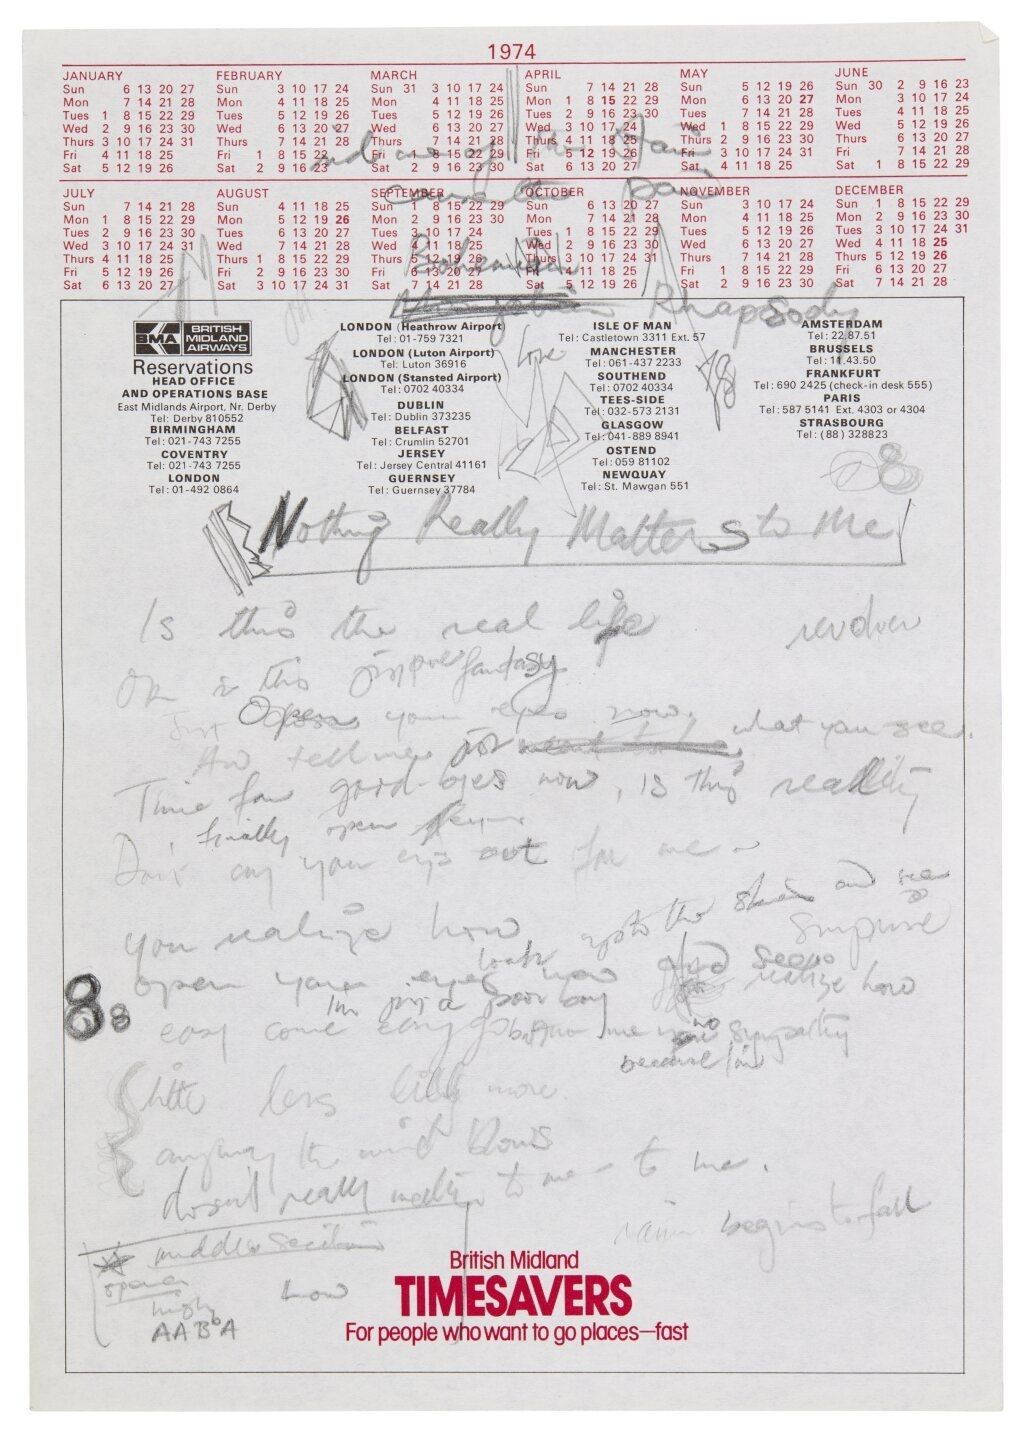 1974
JANUARY
Sun 6 13 20 27
Mon 7 14 21 28
Tues 1 8 15 22 29
Wed 2 9 16 23 30
Thurs 3 10 17 24 31
Fri 4 11 18 25
Sat 5 12 19 26
FEBRUARY
Sun 3 10 17 24
Mon 4 11 18 25
Tues 5 12 19 26
Wed 6 13 20 27
Thurs 7 14 21 28
Fri 1 8 15 22
Sat 2 9 16 23
MARCH
Sun 31 3 10 17 24
Mon 4 11 18 25
Tues 5 12 19 26
Wed 6 13 20 27
Thurs 7 14 21 28
Fri 1 8 15 22 29
Sat 2 9 16 23 30
APRIL
Sun 7 14 21 28
Mon 1 8 15 22 29
Tues 2 9 16 23 30
Wed 3 10 17 24
Thurs 4 11 18 25
Fri 5 12 19 26
Sat 6 13 20 27
MAY
Sun 5 12 19 26
Mon 6 13 20 27
Tues 7 14 21 28
Wed 1 8 15 22 29
Thurs 2 9 16 23 30
Fri 3 10 17 24 31
Sat 4 11 18 25
JUNE
Sun 30 2 9 16 23
Mon 3 10 17 24
Tues 4 11 18 25
Wed 5 12 19 26
Thurs 6 13 20 27
Fri 7 14 21 28
Sat 1 8 15 22 29
one of the
JULY
Sun 7 14 21 28
Mon 1 8 15 22 29
Tues 2 9 16 23 30
Wed 3 10 17 24 31
Thurs 4 11 18 25
Fri 5 12 19 26
Sat 6 13 20 27
AUGUST
Sun 4 11 18 25
Mon 5 12 19 26
Tues 6 13 20 27
Wed 7 14 21 28
Thurs 1 8 15 22 29
Fri 2 9 16 23 30
Sat 3 10 17 24 31
SEPTEMBER
Sun 1 8 15 22 29
Mon 2 9 16 23 30
Tues 3 10 17 24
Wed 4 11 18 25
Thurs 5 12 19 26
Fri 6 13 20 27
Sat 7 14 21 28
OCTOBER
Sun 6 13 20 27
Mon 7 14 21 28
Tues 1 8 15 22 29
Wed 2 9 16 23 30
Thurs 3 10 17 24 31
Fri 4 11 18 25
Sat 5 12 19 26
NOVEMBER
Sun 3 10 17 24
Mon 4 11 18 25
Tues 5 12 19 26
Wed 6 13 20 27
Thurs 7 14 21 28
Fri 1 8 15 22 29
Sat 2 9 16 23 30
DECEMBER
Sun 1 8 15 22 29
Mon 2 9 16 23 30
Tues 3 10 17 24 31
Wed 4 11 18 25
Thurs 5 12 19 26
Fri 6 13 20 27
Sat 7 14 21 28
Bohemian
Rhapsody
BMA BRITISH MIDLAND AIRWAYS
Reservations
HEAD OFFICE
AND OPERATIONS BASE
East Midlands Airport, Nr. Derby
Tel: Derby 810552
BIRMINGHAM
Tel: 021-743 7255
COVENTRY
Tel: 021-743 7255
LONDON
Tel: 01-492 0864
LONDON (Heathrow Airport)
Tel: 01-759 7321
LONDON (Luton Airport)
Tel: Luton 36916
LONDON (Stansted Airport)
Tel: 0702 40334
DUBLIN
Tel: Dublin 373235
BELFAST
Tel: Crumlin 52701
JERSEY
Tel: Jersey Central 41161
GUERNSEY
Tel: Guernsey 37784
Love
ISLE OF MAN
Tel: Castletown 3311 Ext. 57
MANCHESTER
Tel: 061-437 2233
SOUTHEND
Tel: 0702 40334
TEES-SIDE
Tel: 032-573 2131
GLASGOW
Tel: 041-889 8941
OSTEND
Tel: 059 81102
NEWQUAY
Tel: St. Mawgan 551
AMSTERDAM
Tel: 22.87.51
BRUSSELS
Tel: 11.43.50
FRANKFURT
Tel: 690 2425 (check-in desk 555)
PARIS
Tel: 587 5141 Ext. 4303 or 4304
STRASBOURG
Tel: (88) 328823
8
Nothing Really Matters to Me
Is this the real life
Or is this fantasy
Just Open your eyes now
And tell me what you see.
Time for good-byes now, is this reality
finally open
Don't cry your eyes out for me
up to the skies and see
you realize how surprise
look
open your eyes now realize how
I'm just a poor boy
8 8
easy come easy go no sympathy
because I'm
little less little more.
anyway the wind blows
doesn't really matter to me - to me.
begins to fall
middle section
open
how
AABbA
British Midland
TIMESAVERS
For people who want to go places—fast